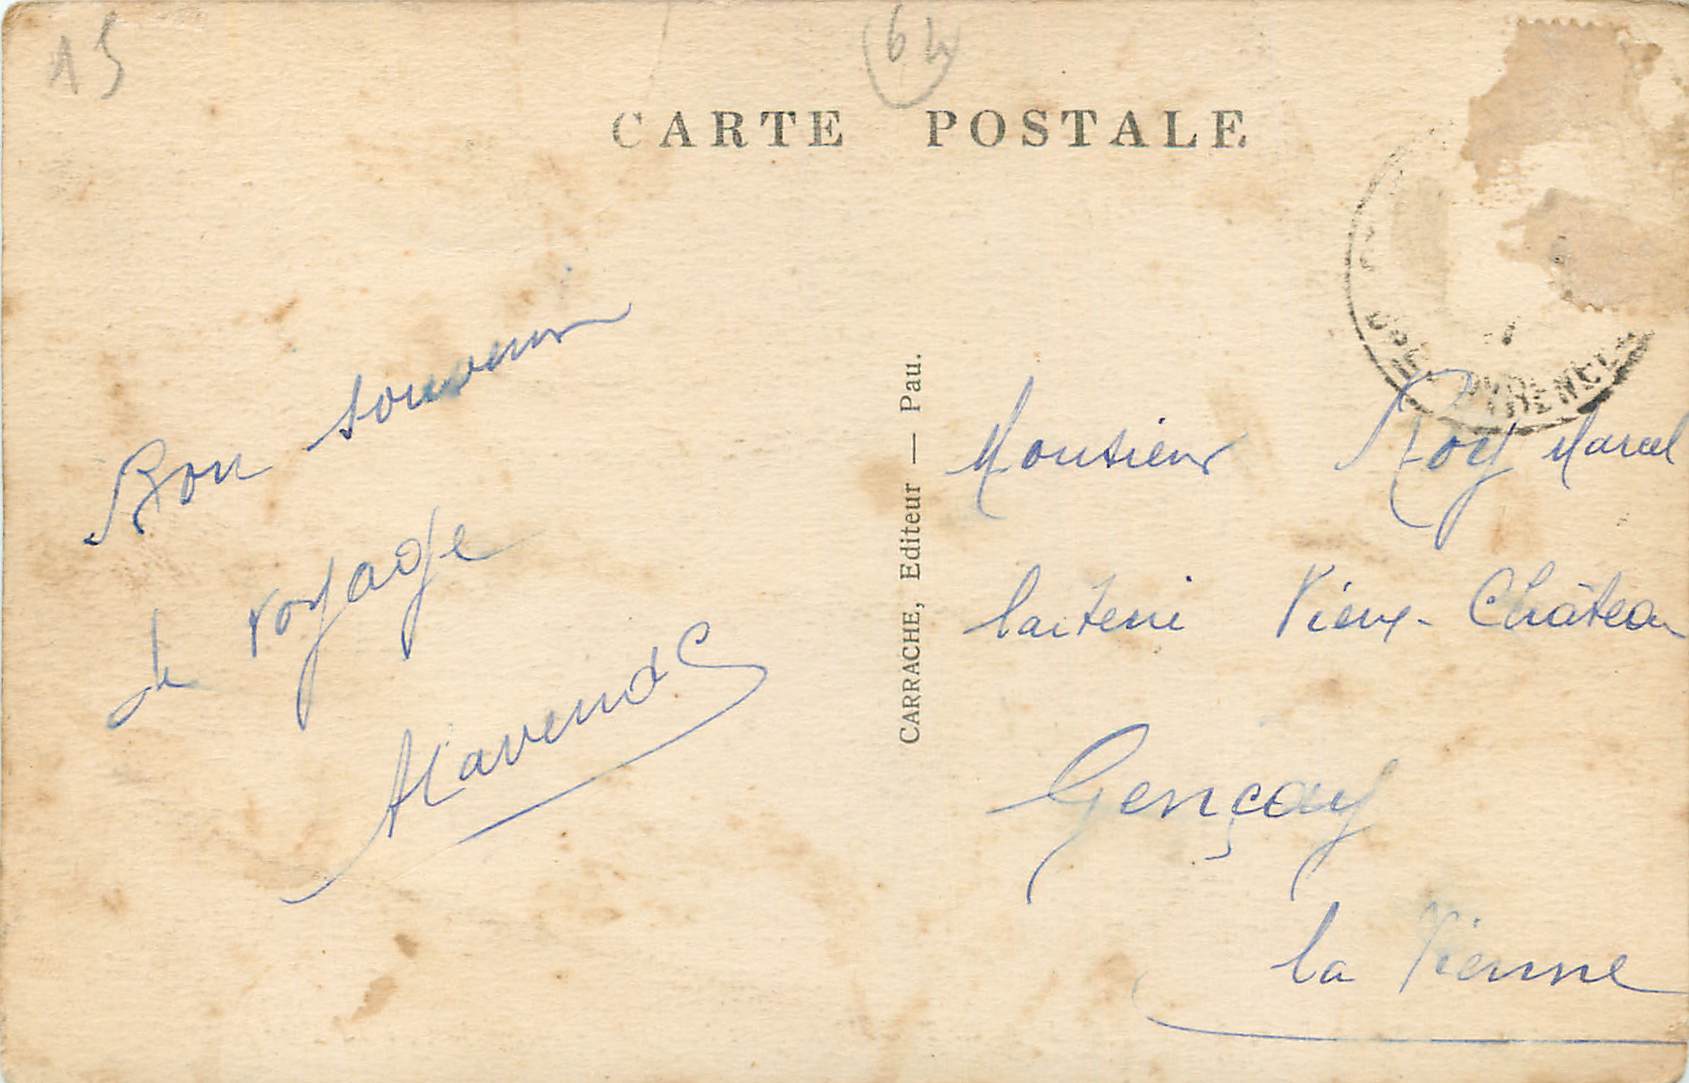 15
64
CARTE POSTALE
Bon souvenir
de voyage
CARRACHE, Editeur — Pau.
Monsieur Roy Marcel
laiterie Vieux-Château
Gençay
la Vienne